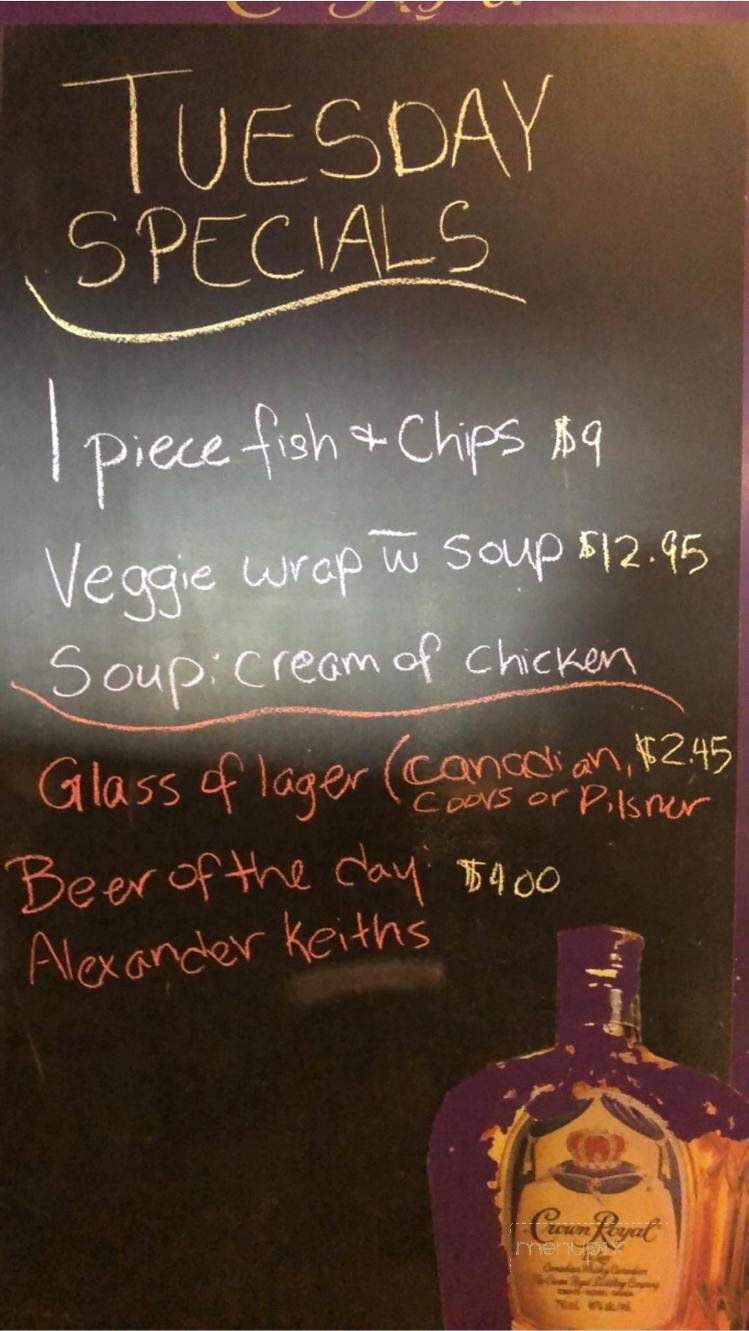 TUESDAY
SPECIALS
1 piece fish & Chips $9
Veggie wrap w̅ soup $12.95
Soup: cream of chicken
Glass of lager (Canadian, $2.45
Coors or Pilsner
Beer of the day $4.00
Alexander Keiths
Crown Royal
menupix
Canadian Whisky Canadien
The Crown Royal Distilling Company